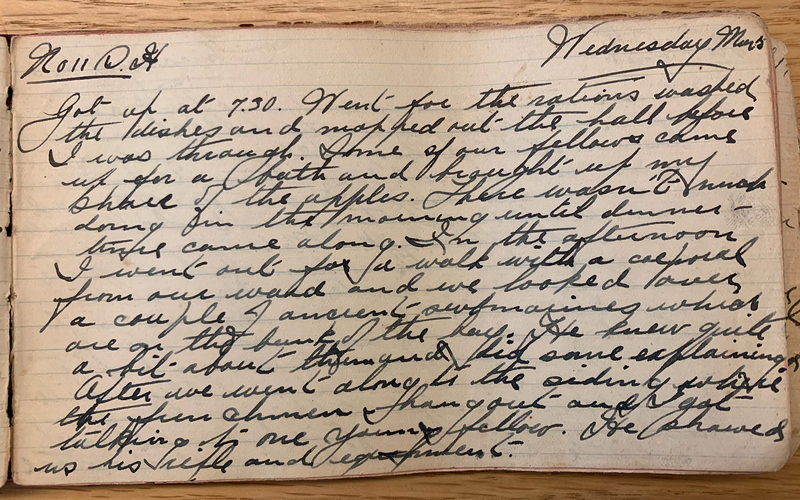 No 11 D. H
Wednesday Mar 5
Got up at 7.30. Went for the rations washed
the dishes and mopped out the hall before
I was through. Some of our fellows came
up for a bath and brought up my
share of the apples. There wasn't much
doing in the morning until dinner
time came along. In the afternoon
I went out for a walk with a corporal
from our ward and we looked over
a couple of ancient submarines which
are on the bank of the bay. He knew quite
a bit about them and did some explaining.
After we went along to the siding where
the frenchmen hang out and I got
talking to one young fellow. He showed
us his rifle and equipment.